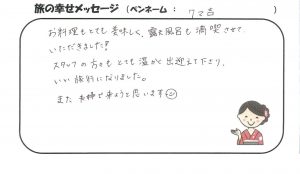 旅の幸せメッセージ (ペンネーム : クマ吉 )
お料理もとても美味しく、露天風呂も満喫させて
いただきました!
スタッフの方々もとても温かく出迎えて下さり、
いい旅行になりました。
また夫婦で来ようと思います